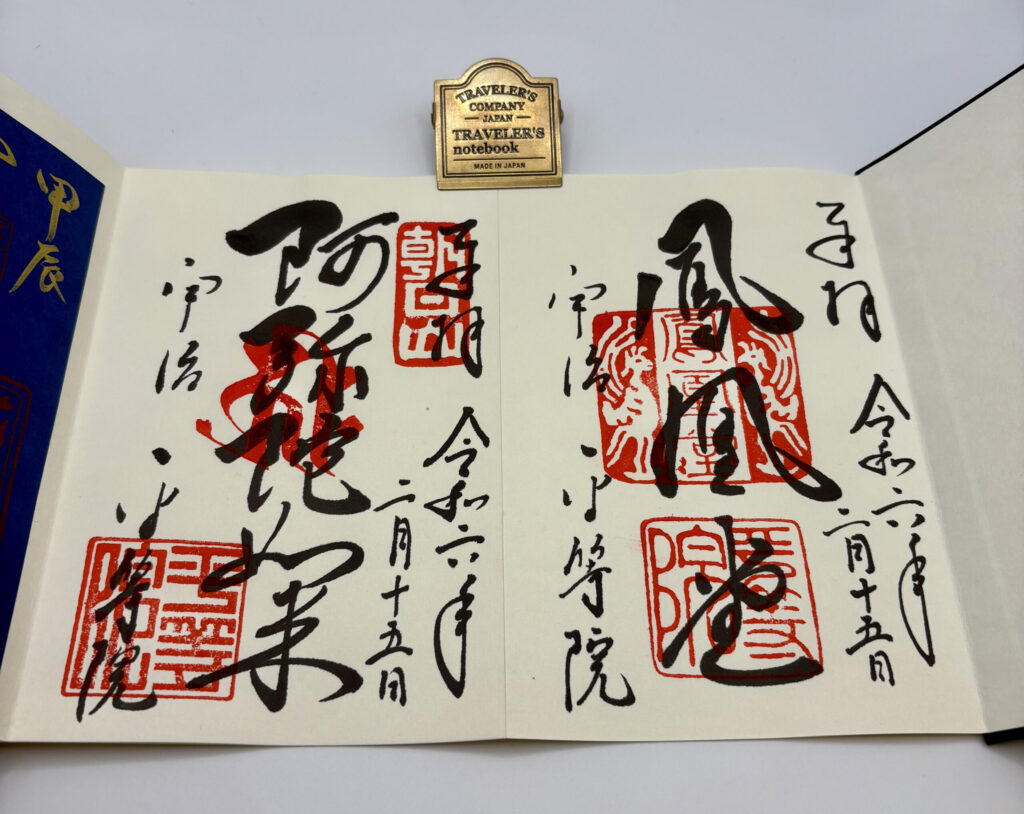 TRAVELER'S
COMPANY
JAPAN
TRAVELER'S
notebook
MADE IN JAPAN
奉拝
令和六年
二月十五日
鳳凰堂
鳳凰堂
宇治
平等院
奉拝
令和六年
二月十五日
阿弥陀如来
宇治
平等院
平等院
甲辰